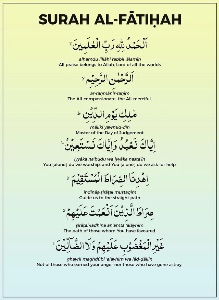 SURAH AL-FĀTIḤAH
اَلْحَمْدُ لِلّٰهِ رَبِّ الْعٰلَمِيْنَ
alhamdu lillāhi rabbil 'ālamīn
All praise belongs to Allah, Lord of all the worlds
اَلرَّحْمٰنِ الرَّحِيْمِ
ar-raḥmānir-raḥīm
The All-compassionate, the All-merciful
مٰلِكِ يَوْمِ الدِّيْنِ
māliki yawmid-dīn
Master of the Day of Judgement
اِيَّاكَ نَعْبُدُ وَاِيَّاكَ نَسْتَعِيْنُ
iyyāka na'budu wa iyyāka nasta'īn
You (alone) do we worship and You do we ask for help
اِهْدِنَا الصِّرَاطَ الْمُسْتَقِيْمَ
ihdinaṣ-ṣirāṭal mustaqīm
Guide us to the straight path
صِرَاطَ الَّذِيْنَ اَنْعَمْتَ عَلَيْهِمْ
ṣirāṭal-ladhīna an'amta 'alayhim
The path of those whom You have favoured
غَيْرِ الْمَغْضُوْبِ عَلَيْهِمْ وَلَا الضَّآلِّيْنَ
ghayril maghḍūbi 'alayhim wa laḍ-ḍāllīn
Not of those who earned your anger, nor those who have gone astray